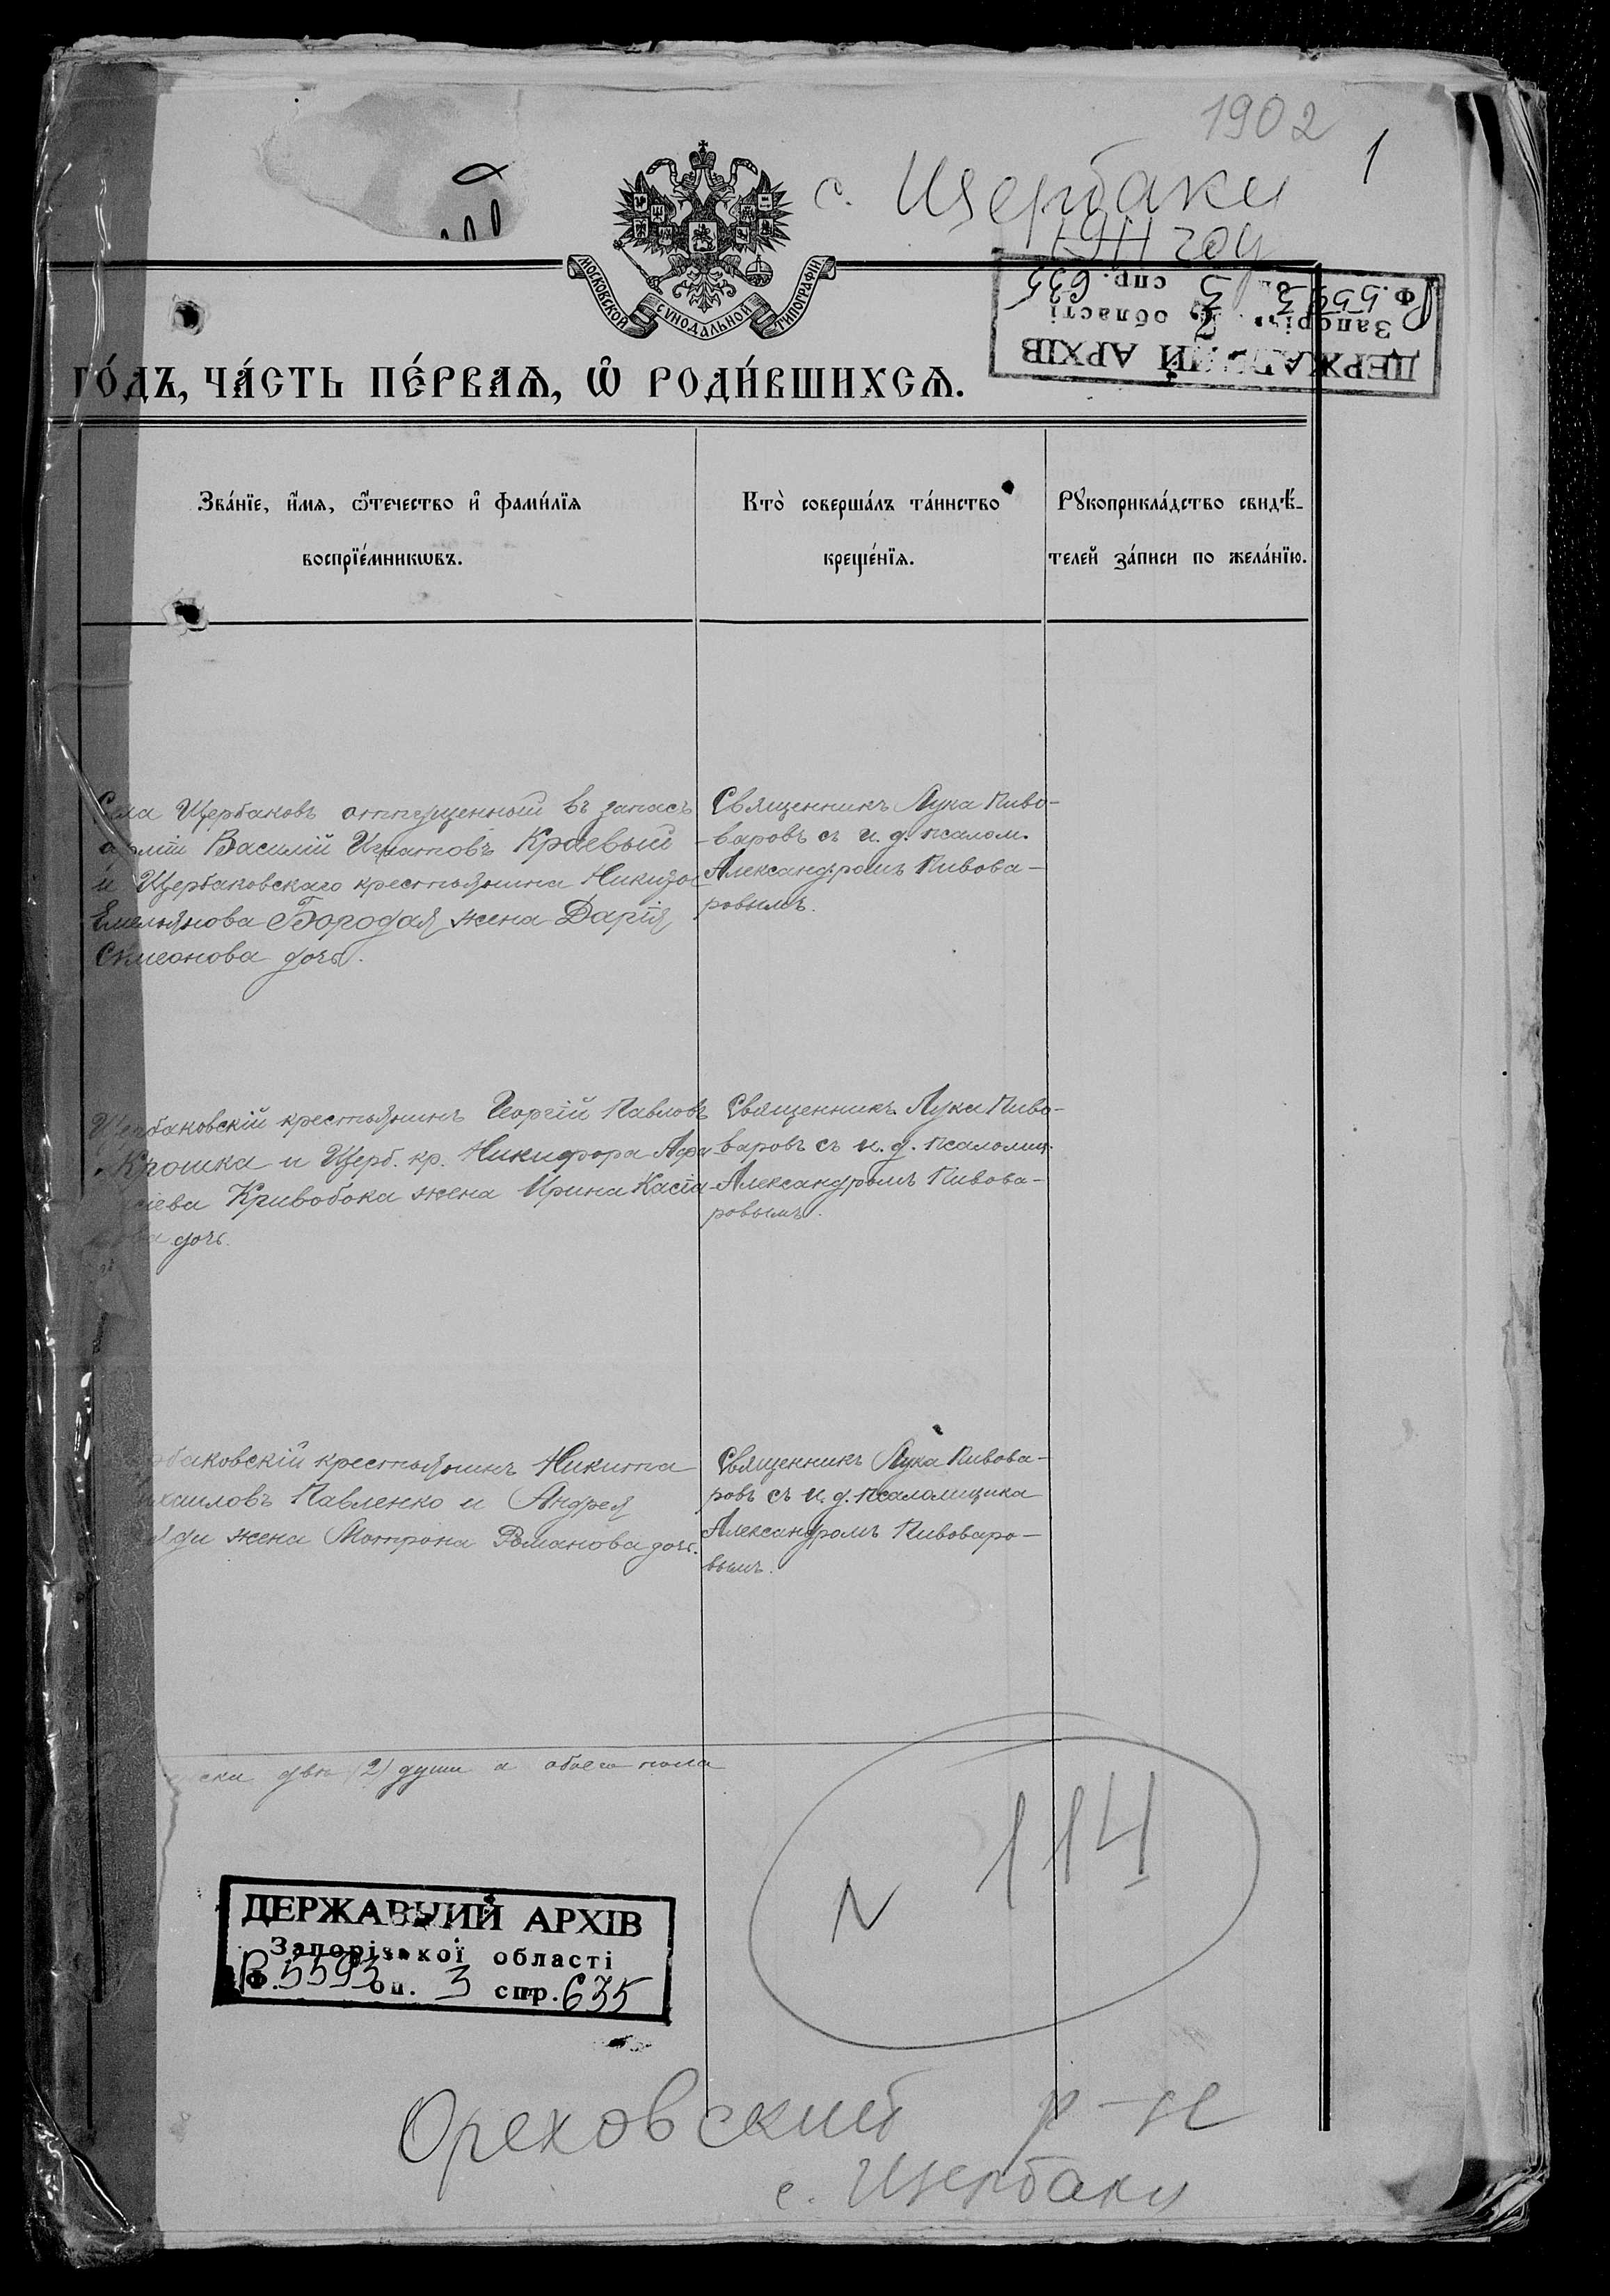 1902
1
с. Щербаки
1911 году
МОСКОВСКОЙ СѴНОДАЛЬНОЙ ТИПОГРАФІИ
ДЕРЖАВНИЙ АРХІВ
Запорізької області
Ф. Р5593 оп. 3 спр. 635
ГО́ДЪ, ЧА́СТЬ ПЕ́РВАѦ, Ѡ҆ РОДИ́ВШИХСѦ.
Зва́нїе, и҆́мѧ, ѻ҆́течество и҆ фами́лїѧ
воспрїе́мникѡвъ.
Кто̀ соверша́лъ та́инство
креще́нїѧ.
Рꙋкоприкла́дство свидѣ́-
телей за́писи по жела́нїю.
Села Щербаковъ отпущенный въ запасъ
арміи Василій Игнатовъ Краевый
и Щербаковскаго крестьянина
Емельянова Бородая жена Дарія
Симеонова дочь.
Священникъ Лука Пиво-
варовъ съ и. д. псалом.
Александромъ Пивова-
ровымъ.
Щербаковскій крестьянинъ Георгій Павловъ
Крошка и Щерб. кр. Никифора Афа
сіева Кривобока жена Ирина Касіа
нова дочь.
Священникъ Лука Пиво-
варовъ съ и. д. псаломщ.
Александромъ Пивова-
ровымъ.
рбаковскій крестьянинъ Никита
ихаиловъ Павленко и Андрея
жена Мотрона Романова дочь.
Священникъ Лука Пивова-
ровъ съ и. д. псаломщика
Александромъ Пивоваро-
вымъ.
две (2) души а обоего пола
N 114
ДЕРЖАВНИЙ АРХІВ
Запорізької області
Ф. Р5593 оп. 3 спр. 635
Ореховский р-н
с. Щербаки